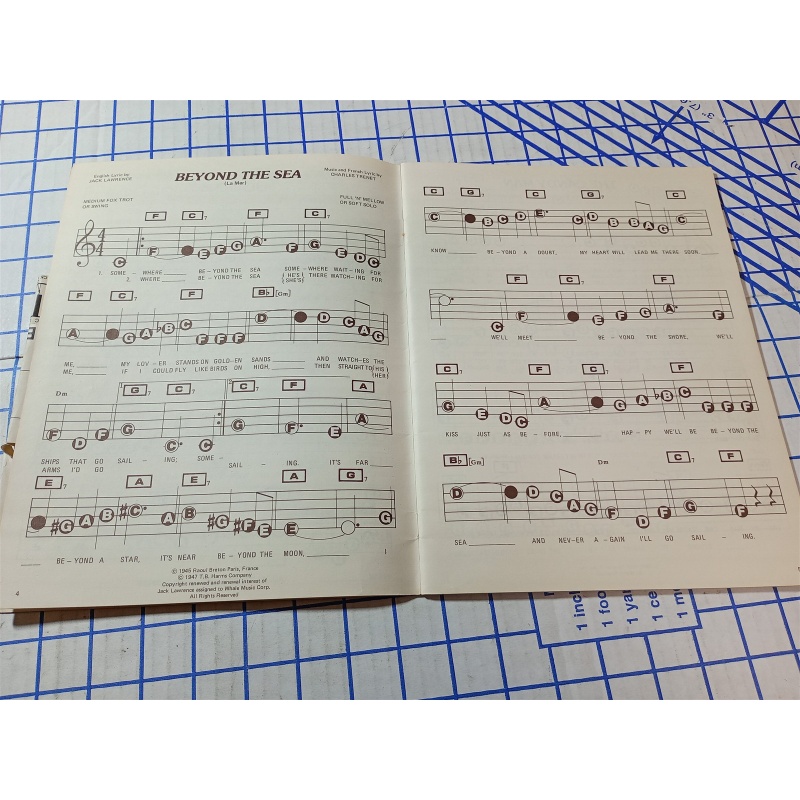 English Lyric by
JACK LAWRENCE
BEYOND THE SEA
(La Mer)
Music and French Lyric by
CHARLES TRENET
MEDIUM FOX TROT
OR SWING
FULL 'N' MELLOW
OR SOFT SOLO
F C7 F C7
4
4
C F E F G A F G E D C
1. SOME – WHERE BE – YOND THE SEA SOME – WHERE WAIT – ING FOR
2. WHERE BE – YOND THE SEA (HE'S) THERE WATCH – ING FOR
(SHE'S)
F C7 F B♭ [Gm]
A G A ♭B C F F F D D C A G
ME, MY LOV – ER STANDS ON GOLD – EN SANDS AND WATCH – ES THE
ME, IF I COULD FLY LIKE BIRDS ON HIGH, THEN STRAIGHT TO (HIS)
(HER)
Dm 1 G C 2 C7 F A
F D F G C C G F E A
SHIPS THAT GO SAIL – ING; SOME –
ARMS I'D GO SAIL – ING. IT'S FAR
E7 A E7 A G7
♯G A B ♯C A B ♯G ♯F E E G
BE – YOND A STAR, IT'S NEAR BE – YOND THE MOON, I
© 1945 Raoul Breton Paris, France
© 1947 T.B. Harms Company
Copyright renewed and renewal interest of
Jack Lawrence assigned to Whale Music Corp.
All Rights Reserved
4
C G7 C G7 C
C B C D E C D B B A G C
KNOW BE – YOND A DOUBT, MY HEART WILL LEAD ME THERE SOON
F C7 F
C F E F G A F
WE'LL MEET BE – YOND THE SHORE, WE'LL
C7 F C7 F
G E D C A G A ♭B C F F F
KISS JUST AS BE – FORE, HAP – PY WE'LL BE BE – YOND THE
B♭ [Gm] Dm C7 F
D D C A G F D F G C
SEA AND NEV – ER A – GAIN I'LL GO SAIL – ING.
1 inc
1 foo
1 ya
1 ce
1 m